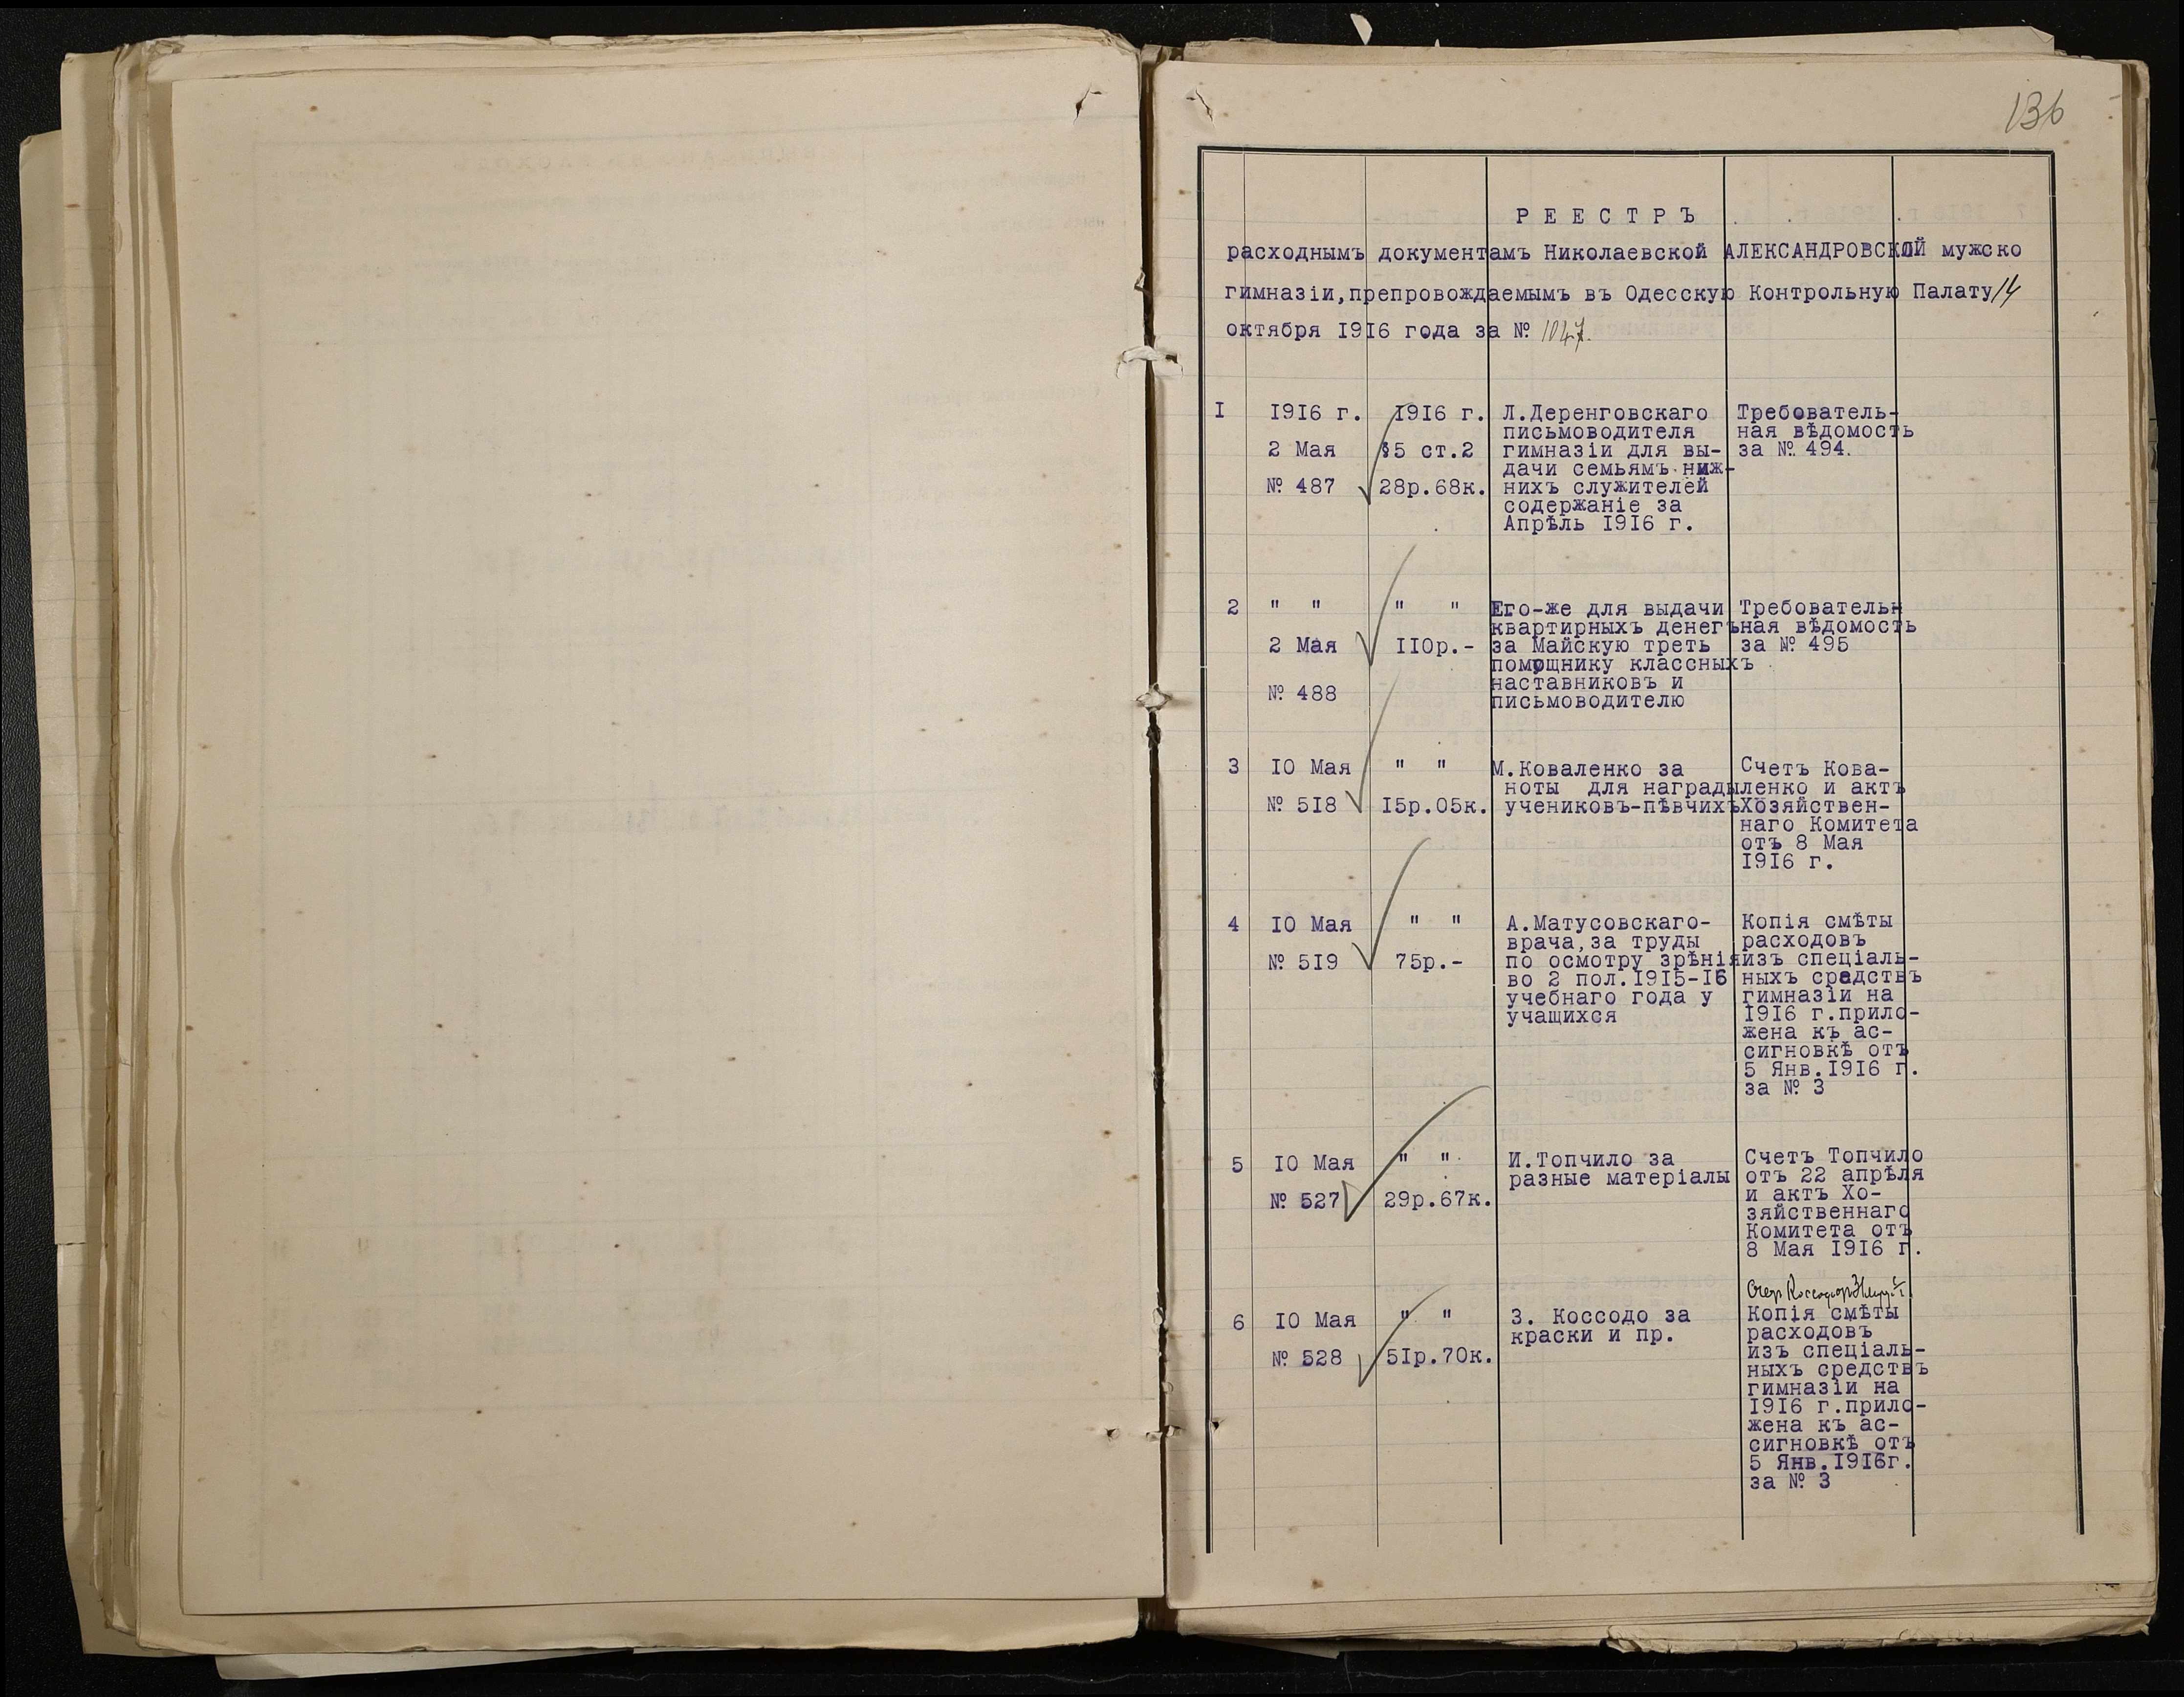 136
РЕЕСТРЪ
расходнымъ документамъ Николаевской АЛЕКСАНДРОВСКОЙ мужско
гимназіи,препровождаемымъ въ Одесскую Контрольную Палату 14
октября 1916 года за № 1047.
I
1916 г.
2 Мая
№ 487
1916 г.
§5 ст.2
28р.68к.
Л.Деренговскаго
письмоводителя
гимназіи для вы-
дачи семьямъ ниж-
нихъ служителей
содержаніе за
Апрѣль 1916 г.
Требователь-
ная вѣдомость
за № 494.
2
" "
2 Мая
№ 488
" "
110р.-
Его-же для выдачи
квартирныхъ денегъ
за Майскую треть
помощнику классныхъ
наставниковъ и
письмоводителю
Требовательн
ная вѣдомость
за № 495
3
10 Мая
№ 518
" "
15р.05к.
М.Коваленко за
ноты для награды
учениковъ-пѣвчихъ
Счетъ Кова-
ленко и актъ
Хозяйствен-
наго Комитета
отъ 8 Мая
1916 г.
4
10 Мая
№ 519
" "
75р.-
А.Матусовскаго-
врача,за труды
по осмотру зрѣнія
во 2 пол.1915-16
учебнаго года у
учащихся
Копія смѣты
расходовъ
изъ спеціаль-
ныхъ средствъ
гимназіи на
1916 г.прило-
жена къ ас-
сигновкѣ отъ
5 Янв.1916 г.
за № 3
5
10 Мая
№ 527
" "
29р.67к.
И.Топчило за
разные матеріалы
Счетъ Топчило
отъ 22 апрѣля
и актъ Хо-
зяйственнаго
Комитета отъ
8 Мая 1916 г.
6
10 Мая
№ 528
" "
51р.70к.
З. Коссодо за
краски и пр.
Копія смѣты
расходовъ
изъ спеціаль-
ныхъ средствъ
гимназіи на
1916 г.прило-
жена къ ас-
сигновкѣ отъ
5 Янв.1916г.
за № 3